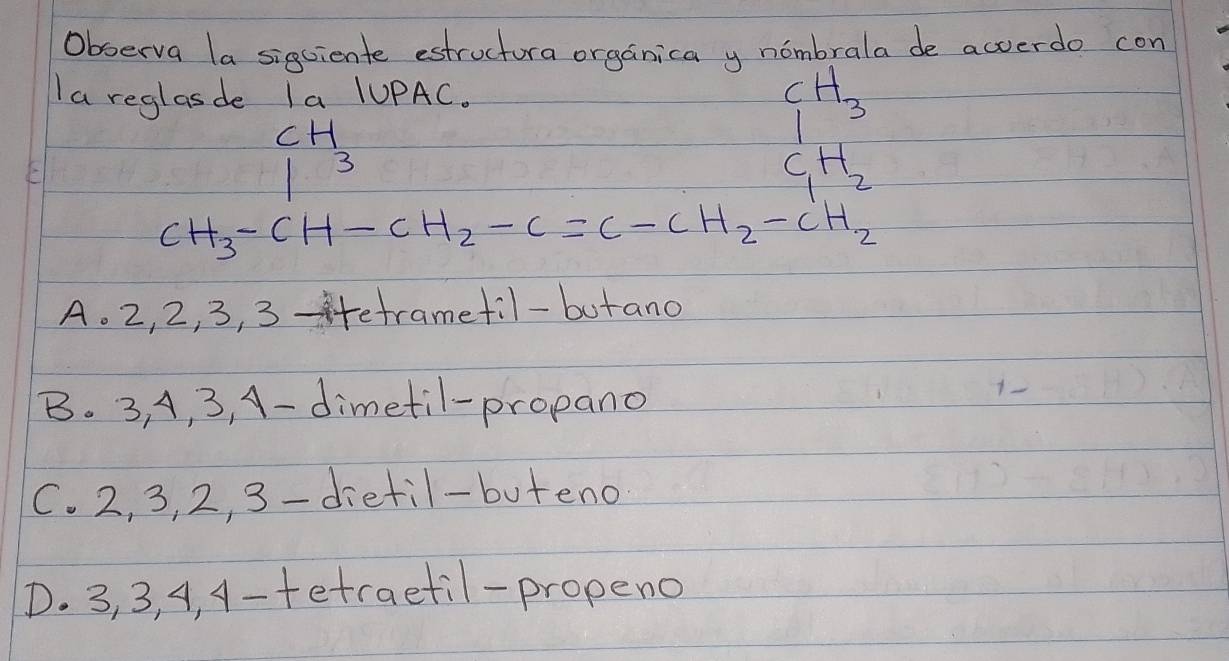 Observa la siguiente estructura orgánica y nómbrala de acuerdo con
la reglas de la IUPAC.
CH3
|
CH3
|
CH2
|
CH3-CH-CH2-C=C-CH2-CH2
A. 2,2,3,3-tetrametil-butano
B. 3,4,3,4-dimetil-propano
C. 2,3,2,3-dietil-buteno
D. 3,3,4,4-tetraetil-propeno